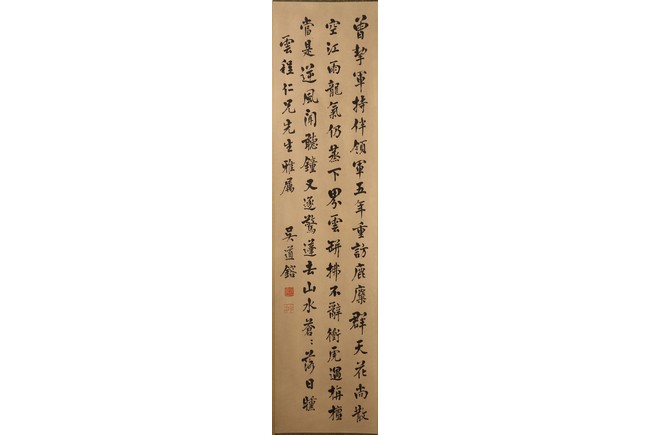 曾挈軍持伴領軍五年重訪鹿麋群天花尚散
空江雨龍氣仍蒸下界雲缽拂不辭衝虎過栴檀
當是逆風聞聽鐘又逐驚蓬去山水蒼〻落日曛
雲程仁兄先生雅属
吳道鎔